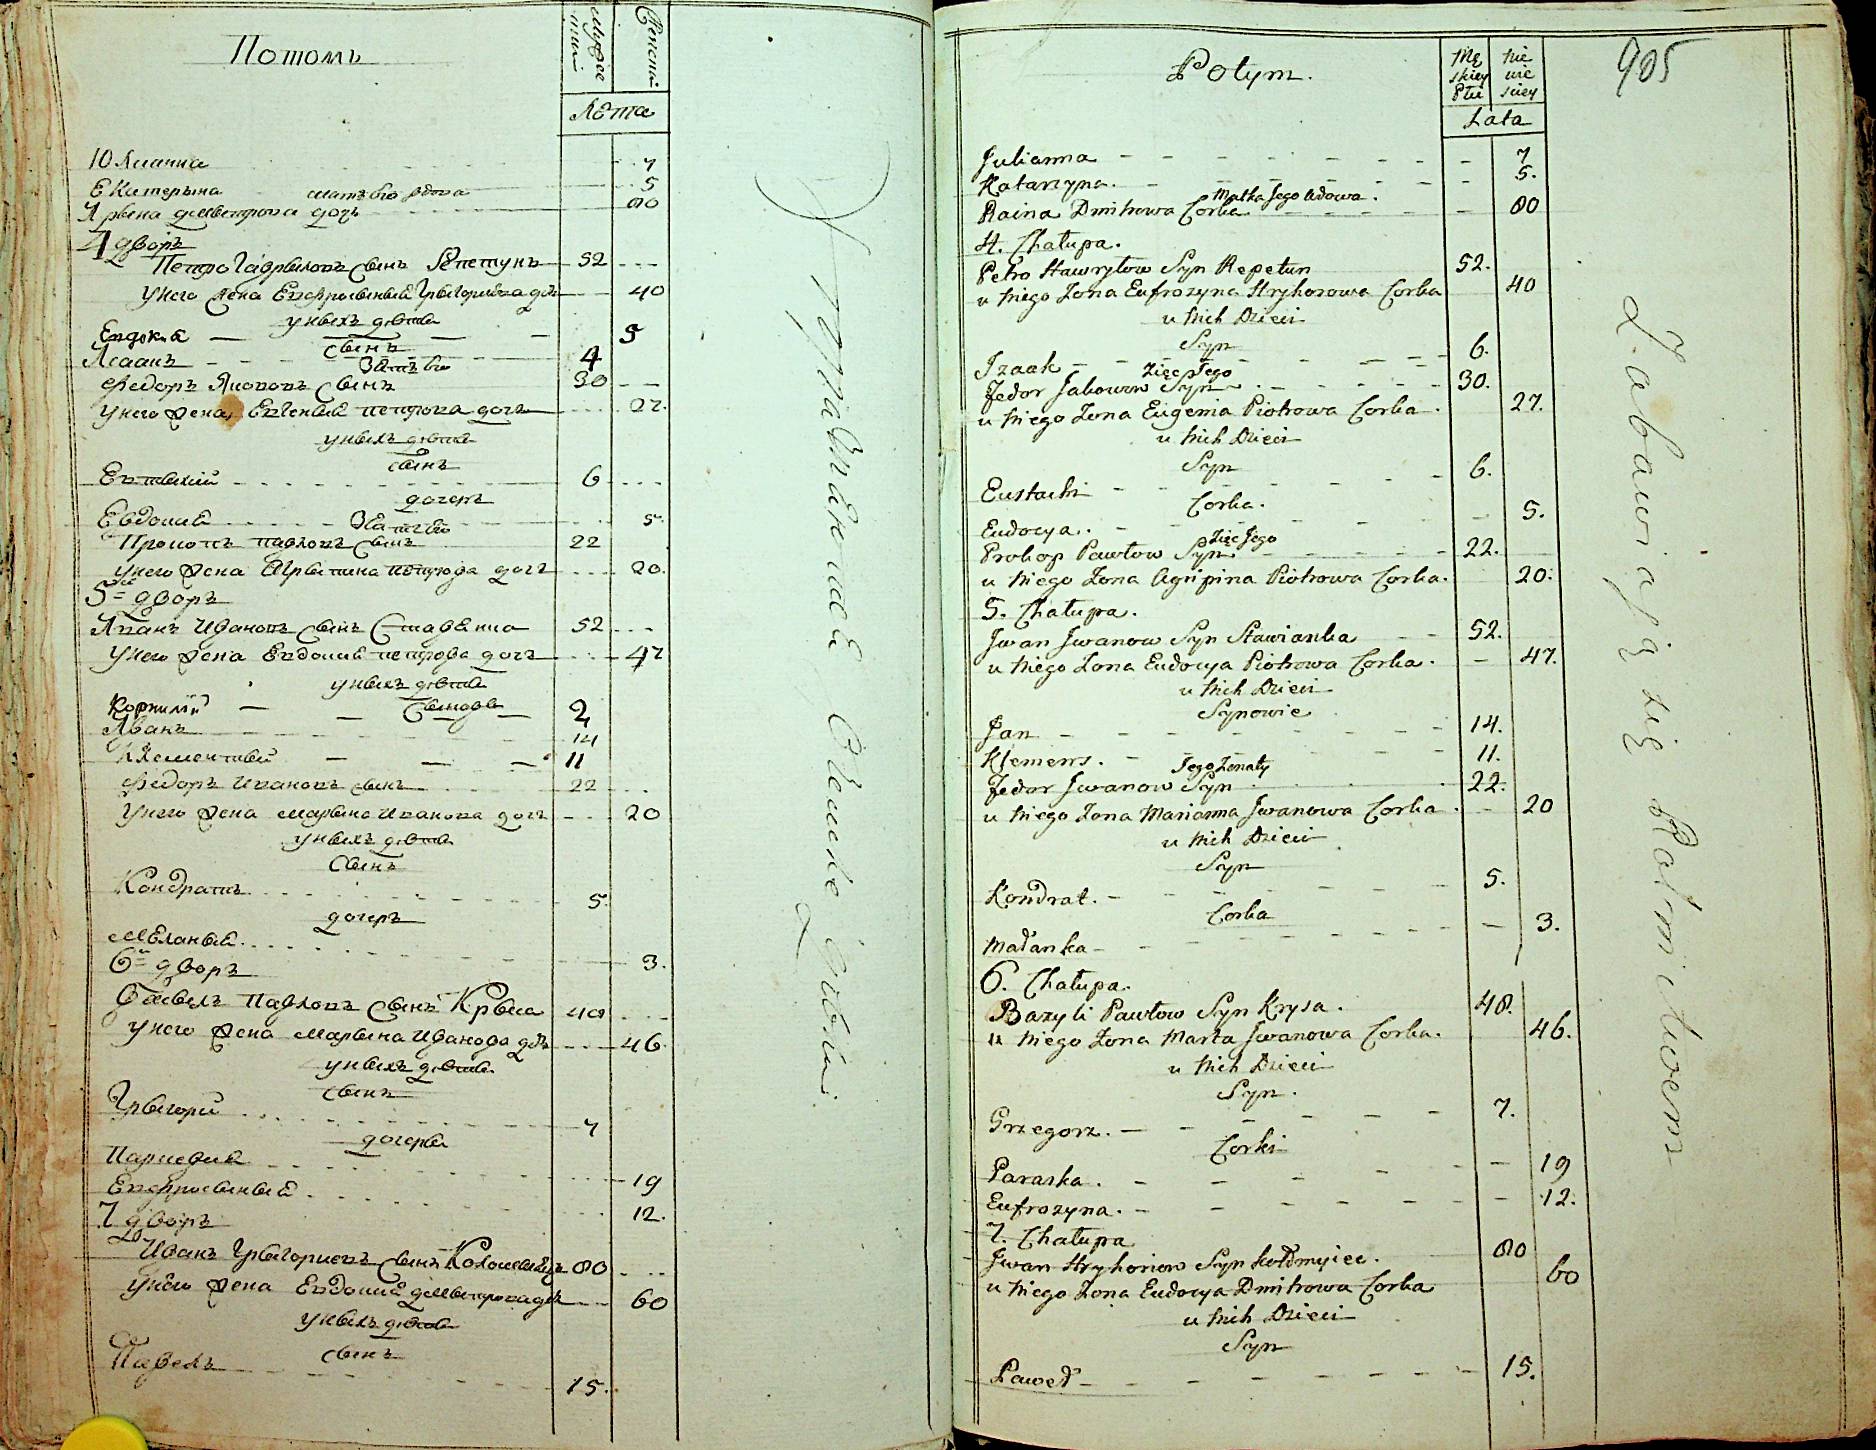 Потомъ
Мужес
кий
Женский
Лѣта
Юлианна 7
Екатерына 5
мать его вдова
Арына дмытрова дочь 80
4 дворъ
Петро Гаврыловъ сынъ Репетунъ 52
у него жена Евфросыныя Грыгорыева дочь 40
у ныхъ дѣти
Евдокия 5
сынъ
Исаакъ 4
Зять его
Федоръ Якововъ сынъ 30
у него жена Евгения петрова дочь 27.
у ныхъ дѣти
сынъ
Евтихий 6
дочерь
Евдокия 5
Зять его
Прокопъ павловъ сынъ 22
у него жена Агрыпина петрова дочь 20.
5й дворъ
Иванъ Ивановъ сынъ Ставянка 52
у него жена Евдокия петрова дочь 47
у ныхъ дѣти
Корнилий 2
сынове
Иванъ 14
Клементий 11
Федоръ Ивановъ сынъ 22
у него жена Марына Иванова дочь 20
у ныхъ дѣти
сынъ
Кондратъ 5.
дочеръ
Меланыя 3.
6й дворъ
Василь Павловъ сынъ Крыса 48
у него жена Марына Иванова дочь 46.
у ныхъ дѣти
сынъ
Грыгорий 7
дочеры
Параскевия 19
Евфросыныя 12.
7 дворъ
Иванъ Грыгориевъ сынъ Коломыецъ 80
у него жена Евдокия дмытрова дочь 60
у ныхъ дѣти
сынъ
Павелъ 15.
Potym.
Mę
skiey
Płci
Nie
wie
sciey
Lata
905
Julianna 7
Katarzyna. 5.
Matka Jego wdowa.
Raina Dmitrowa Corka 80
4. Chałupa.
Petro Hawryłow Syn Repetun 52.
u Niego Zona Eufrozyna Hryhorowa Corka 40
u Nich Dzieci
Syn
Izaak 6.
Zięć Jego
Fedor Jakowow Syn 30.
u Niego Zona Eugenia Piotrowa Corka. 27.
u Nich Dzieci
Syn 6.
Eustachi
Corka.
Eudocya. 5.
Zięć Jego
Prokop Pawłow Syn 22.
u Niego Zona Agripina Piotrowa Corka. 20.
5. Chałupa.
Jwan Jwanow Syn Stawianka 52.
u Niego Zona Eudocya Piotrowa Corka. 47.
u Nich Dzieci
Synowie
Jan 14.
Klemens. 11.
Jego Zonaty
Fedor Jwanow Syn 22.
u Niego Zona Marianna Jwanowa Corka. 20
u Nich Dzieci
Syn
Kondrat. 5.
Corka 3.
Małanka
6. Chałupa.
Bazyli Pawłow Syn Krysa. 48.
u Niego Zona Marta Jwanowa Corka. 46.
u Nich Dzieci
Syn. 7.
Grzegorz.
Corki
Paraska. 19
Eufrozyna. 12.
7. Chałupa
Jwan Hryhoriow Syn Kołomyiec. 80
u Niego Zona Eudocya Dmitrowa Corka 60
u Nich Dzieci
Syn
Paweł 15.
Zabawiają się Rolnictwem